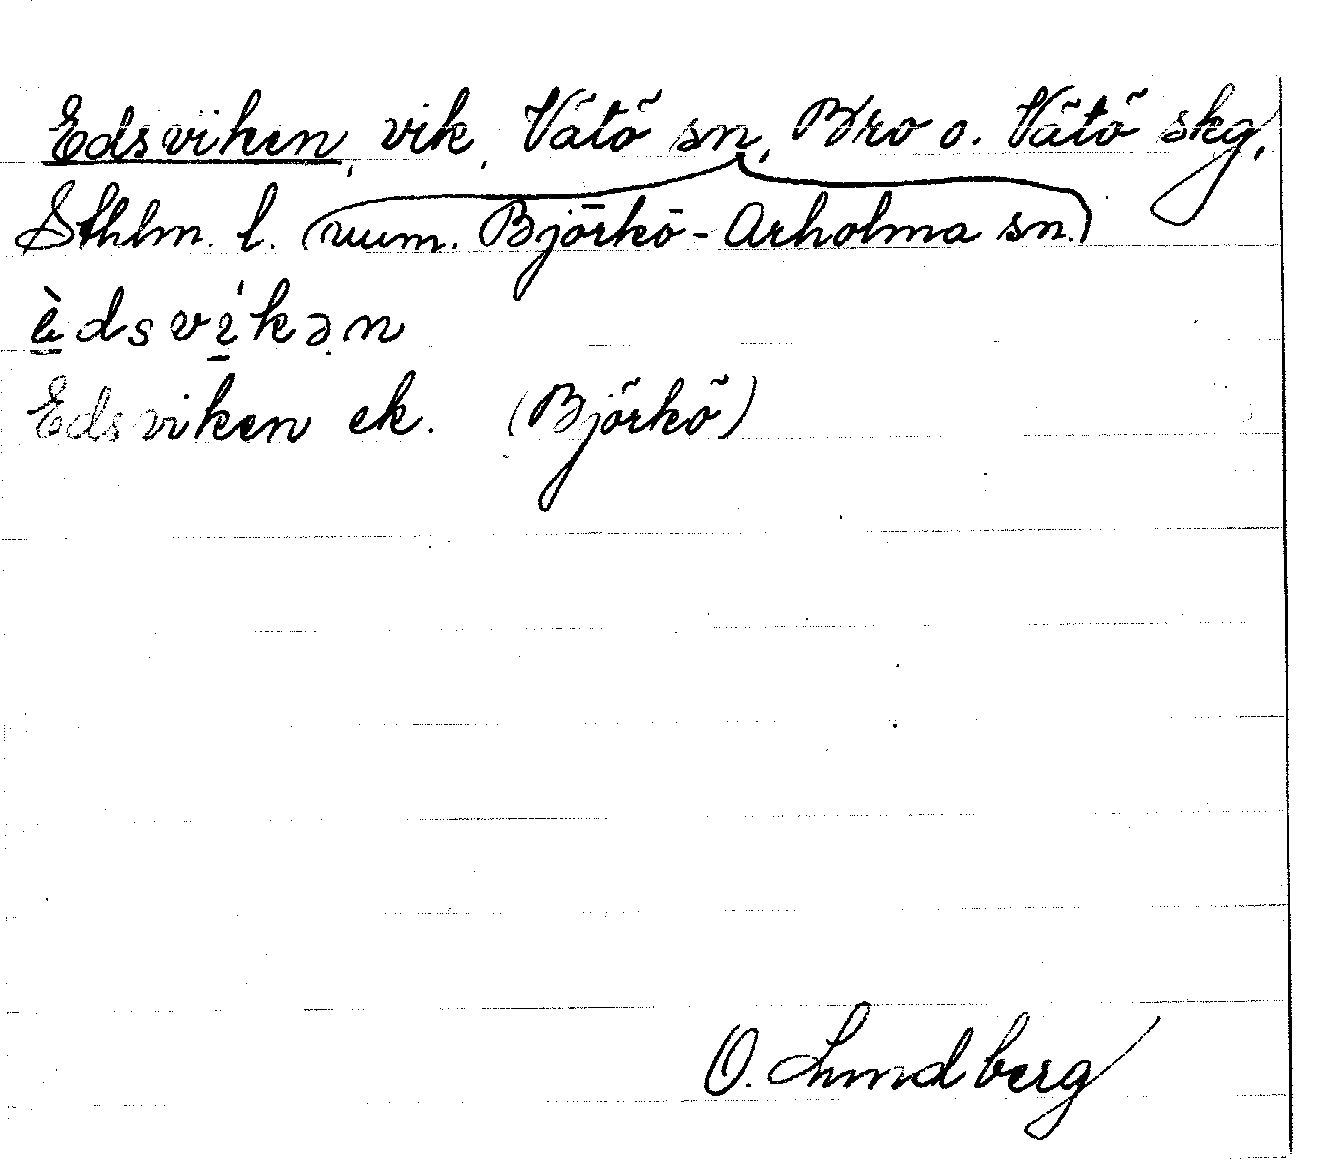 Edsviken, vik, Vätö sn, Bro o. Vätö skg,
Sthlm. l. (num. Björkö-Arholma sn.)
è̱dsvi̱'kən
Edsviken ek. (Björkö)
O. Lundberg